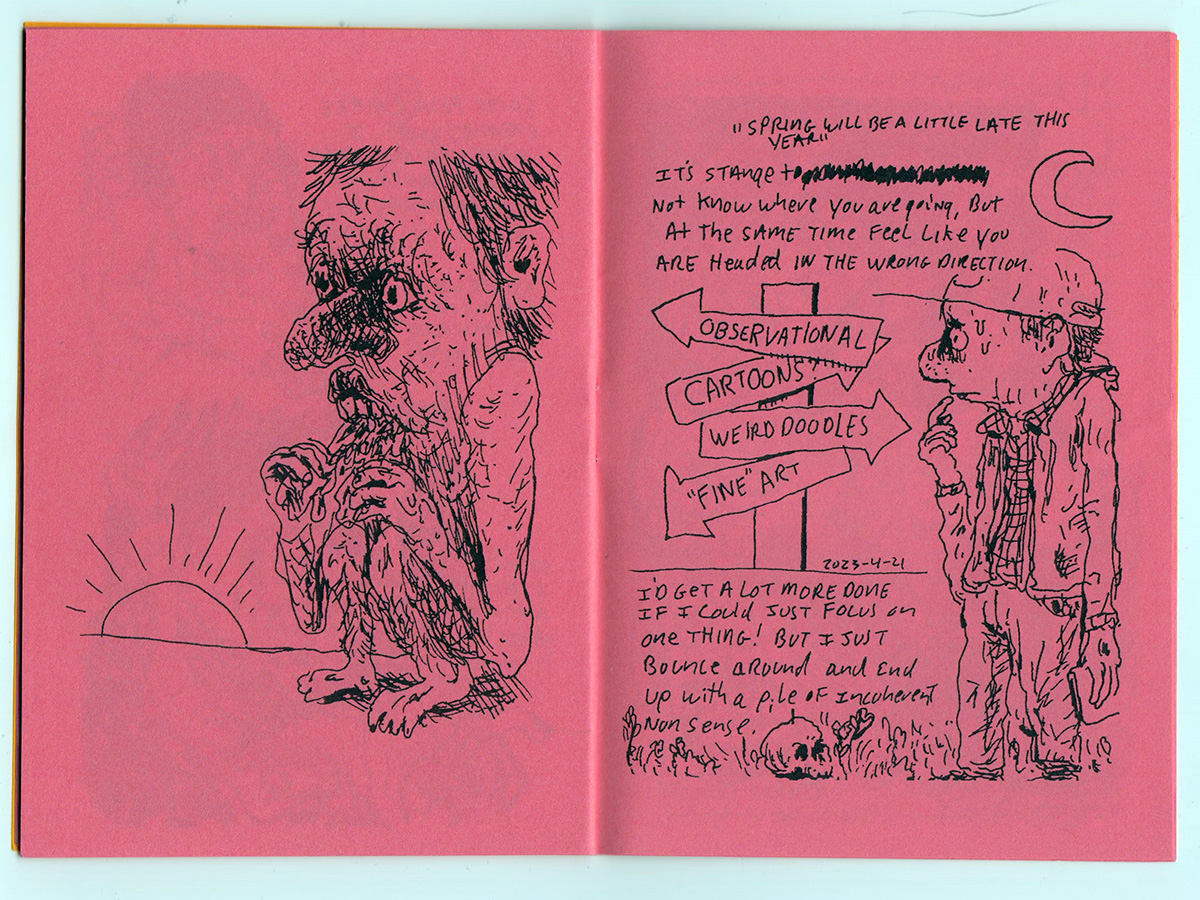 "SPRING WILL BE A LITTLE LATE THIS
YEAR"
IT'S STANGE to
Not Know where you are going, But
At the SAME TIME Feel Like you
ARE Headed IN THE WRONG DIRECTION.
OBSERVATIONAL
CARTOONS
WEIRD DOODLES
"FINE" ART
2023-4-21
I'D GET A LOT MORE DONE
IF I COULD JUST FOCUS on
one THING! BUT I JUST
Bounce around and End
up with a pile OF Incoherent
Non sense.